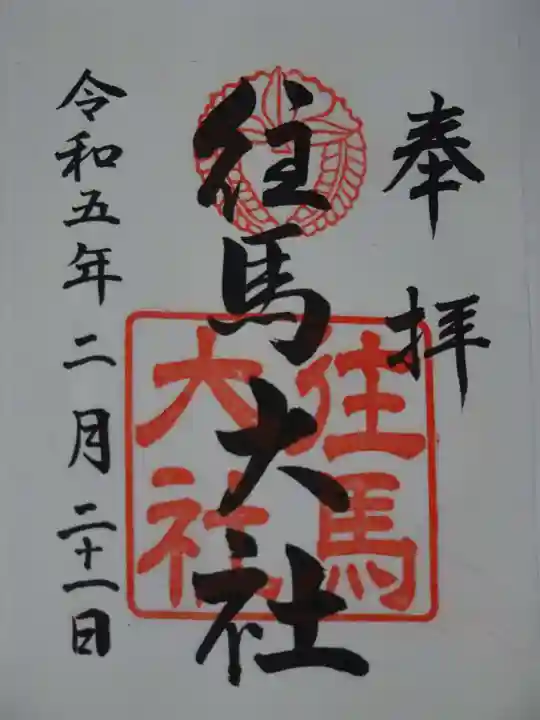 奉拝
往馬大社
往馬
大社
令和五年二月二十一日